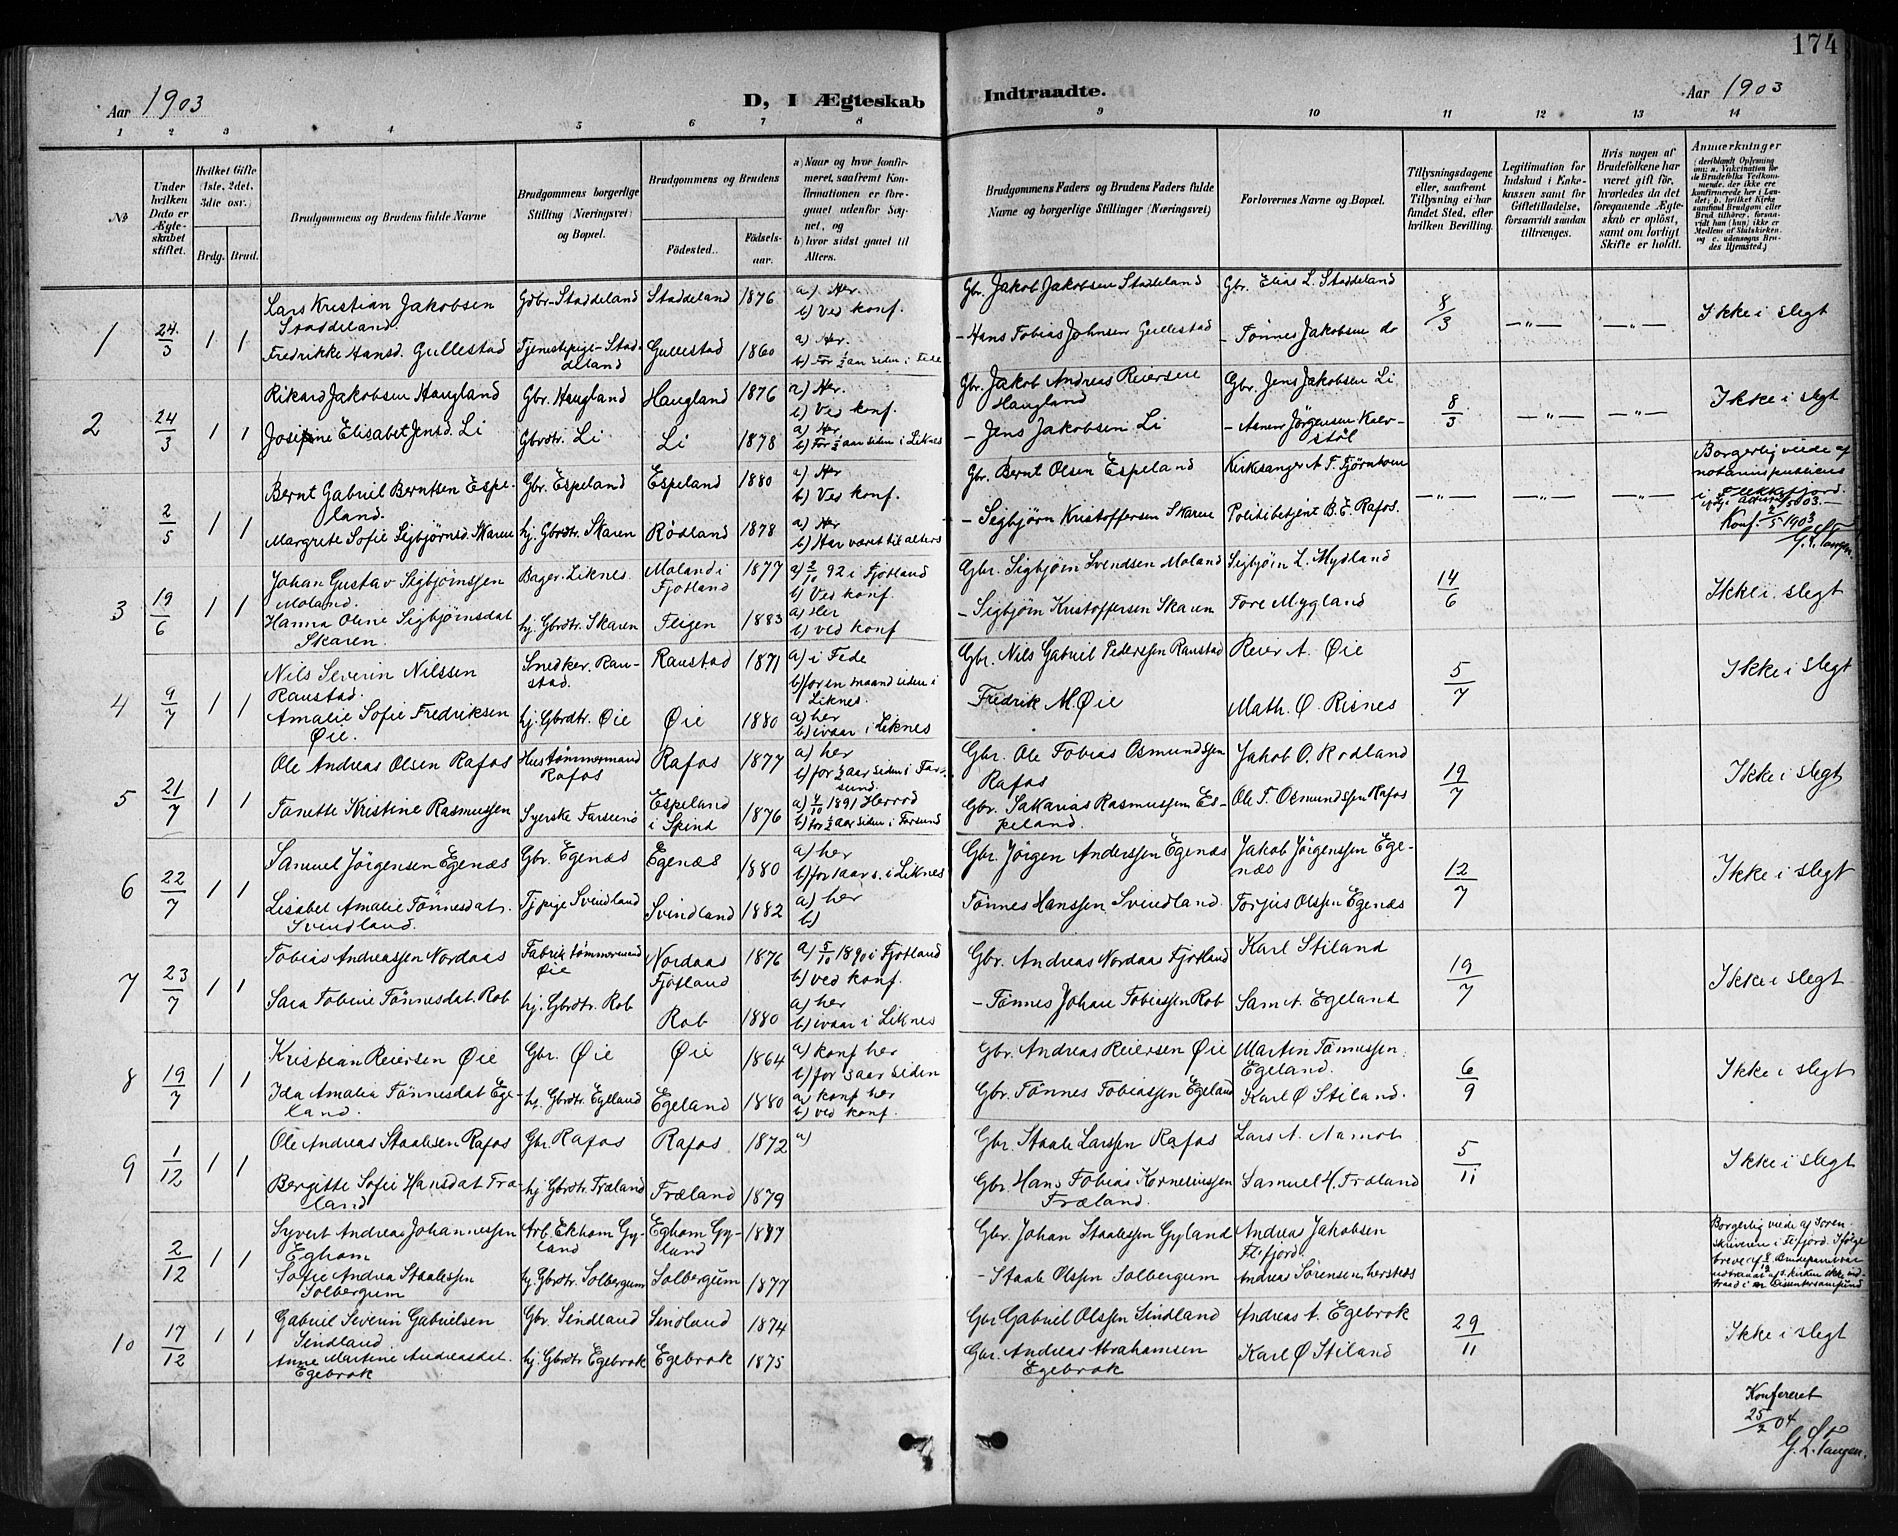 174
Aar 1903
D, I Ægteskab Indtraadte.
Aar 1903
1 2 3 4 5 6 7 8 9 10 11 12 13 14
No
Under hvilken Dato er Ægteskabet stiftet.
Hvilket Gifte (1ste, 2det, 3die osv.)
Brdg. Brud.
Brudgommens og Brudens fulde Navne
Brudgommens borgerlige Stilling (Næringsvei) og Bopæl.
Brudgommens og Brudens
Födested.
Födselsaar.
a) Naar og hvor konfirmeret, saafremt Konfirmationen er foregaaet udenfor Sognet, og
b) hvor sidst gaaet til Alters.
Brudgommens Faders og Brudens Faders fulde Navne og borgerlige Stillinger (Næringsvei)
Forlovernes Navne og Bopæl.
Tillysningsdagene eller, saafremt Tillysning ei har fundet Sted, efter hvilken Bevilling.
Legitimation for Indskud i Enkekassen samt for Giftetilladelse, forsaavidt saadan tiltrænges.
Hvis nogen af Brudefolkene har været gift för, hvorledes da det foregaaende Ægteskab er oplöst, samt om lovligt Skifte er holdt.
Anmærkninger
(deriblandt Oplysning om: a. Vakcination for de Brudefolks Vedkommende, der ikke ere konfirmerede her i Landet; b. hvilket Kirkesamfund Brudgom eller Brud tilhörer, forsaavidt han (hun) ikke er Medlem af Statskirken, og c. udensogns Brudes Hjemsted.)
1 24/3 1 1
Lars Kristian Jakobsen Staddeland. Gdbr. Staddeland Staddeland 1876 a) Her. b) Ved konf. Gbr. Jakob Jakobsen Staddeland Gbr. Elias L. Staddeland 8/3 —"— —"— Ikke i slegt
Fredrikke Hansd. Gullestad Tjenestepige - Staddeland Gullestad 1860 a) Her. b) For ½ aar siden i Fede - Hans Tobias Johnsen Gullestad - Tønnes Jakobsen do
2 24/3 1 1
Rikard Jakobsen Haugland Gbr. Haugland Haugland 1876 a) Her. b) Ved konf. Gbr. Jakob Andreas Reiersen Haugland Gbr. Jens Jakobsen Li 8/3 —"— —"— Ikke i slegt
Josefine Elisabet Jensd. Li Gbrdtr. Li Li 1878 a) Her b) For ½ aar siden i Liknes - Jens Jakobsen Li - Jörgensen
2/5 1 1
Bernt Gabriel Berntsen Espeland. Gbr. Espeland Espeland 1880 a) Her b) Ved konf. Gbr. Bernt Olsen Espeland Kirksanger A. T. Fjørnhom —"— —"— —"— Borgerlig viede af notarius publicus i Flekkefjord
Margrete Sofie Sigbjørnsd. Skaren hj. Gbrdtr. Skaren Rødland 1878 a) Her b) Har været til alters - Sigbjørn Kristoffersen Skaren Politibetjent B. E. Rafos. Konf. 2/5 1903 G. L. Tangen.
3 19/6 1 1
Johan Gustav Sigbjørnssen Moland. Bager. Liknes. Moland i Fjotland 1877 a) 2/10 92 i Fjotland b) Ved konf. Gbr. Sigbjørn Svendsen Moland Sigbjørn L. Mydland 14/6 Ikke i slegt
Hanna Oline Sigbjørnsdat Skaren. hj. Gbrdtr. Skaren Fligen 1883 a) Her b) ved konf - Sigbjørn Kristoffersen Skaren Tore Mygland
4 9/7 1 1
Nils Severin Nilssen Raustad. Snedker. Raustad. Raustad 1871 a) i Fede b) for en maand siden i Liknes. Gbr. Nils Gabriel Pederssen Raustad Reier A. Øie 5/7 Ikke i slegt
Amalie Sofie Fredriksen Øie. hj. Gbrdtr. Øie Øie 1880 a) her b) ivaar i Liknes Fredrik M. Øie Math. O. Risnes
5 21/7 1 1
Ole Andreas Olsen Rafos Hustømmermand Rafos Rafos 1877 a) her b) for ½ aar siden i Farsund. Gbr. Ole Tobias Osmundssen Rafos Jakob O. Rodland 19/7 Ikke i slegt
Tanette Kristine Rasmussen Syerske Farsund Espeland i Spind 1876 a) 4/10 1891 Herred b) for ½ aar siden i Farsund Gbr. Sakarias Rasmussen Espeland. Ole T. Osmundssen Rafos
6 22/7 1 1
Samuel Jörgensen Egenæs Gbr. Egenæs Egenæs 1880 a) her b) for 1 aar s. i Liknes Gbr. Jörgen Anderssen Egenæs Jakob Jörgenssen Egenæs 12/7 Ikke i slegt
Lisabet Amalie Tönnesdat. Svindland. Tj pige Svindland Svindland 1882 a) her b) Tönnes Hanssen Svindland. Torjus Olssen Egenæs
7 23/7 1 1
Tobias Andreassen Nordaas Fabriktømmermand Øie Nordaas Fjotland 1876 a) 5/10 1890 i Fjotland b) ved konf. Gbr. Andreas Nordaas Fjotland Karl Stiland 19/7 Ikke i slegt
Sara Tobine Tønnesdat. Rob hj. Gbrdtr. Rob Rob 1880 a) her b) ivaar i Liknes - Tønnes Johan Tobiassen Rob Sam A. Egeland
8 19/7 1 1
Kristian Reiersen Øie Gbr. Øie Øie 1864 a) konf her b) for 3 aar siden Gbr. Andreas Reiersen Øie Martin Tønnessen Egeland. 6/9 Ikke i slegt
Ida Amalia Tønnesdat Egeland. hj. Gbrdtr. Egeland Egeland 1880 a) konf her b) ved konf. Gbr. Tønnes Tobiassen Egeland Karl Ø Stiland.
9 1/12 1 1
Ole Andreas Staalesen Rafos Gbr. Rafos Rafos 1872 a) Gbr. Staale Larssen Rafos Lars A. Aamot 5/11 Ikke i slegt
Bergitte Sofie Hansdat Træland hj. Gbrdtr. Træland Træland 1879 Gbr. Hans Tobias Korneliussen Træland. Samuel H. Træland
2/12 1 1
Syvert Andreas Johannessen Eghom Arb. Ekhom Gyland Eghom Gyland 1877 Gbr. Johan Staalessen Gyland Andreas Jakobsen Fl.fjord. Borgerlig viede af Sorenskriveren i Fl.fjord. Ifølge breve af
Sofie Andrea Staalessen Solbergum hj. Gbrdtr. Solbergum Solbergum 1877 - Staale Olssen Solbergum Andreas Sørensen,
10 17/12 1 1
Gabriel Severin Gabrielsen Sindland Gbr. Sindland Sindland 1874 Gbr Gabriel Olssen Sindland Andreas A. Egebrok 29/11 Ikke i slegt
Anne Martine Andreasdat. Egebrok hj. Gbrdtr. Egebrok Egebrok 1875 Gbr. Andreas Abrahamsen Egebrok Karl Ø Stiland
Konfereret 25/2 04 G. L. Tangen.